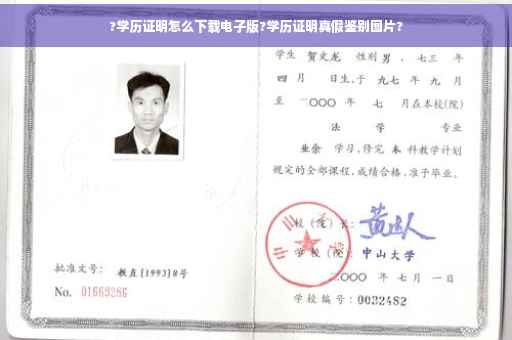 ?学历证明怎么下载电子版?学历证明真假鉴别图片?
学生 贺文龙 性别 男 、七三 年
四 月 日生,于 九七 年 九 月
至 二〇〇〇 年 七 月在本校(院)
法 学 专业
业余 学习,修完 本 科教学计划
规定的全部课程,成绩合格,准予毕业。
校(院)长:
学校(院): 中山大学
二〇〇〇 年 七 月 一 日
批准文号: 教直[1993]8号
No. 01669286
学校编号: 0032482